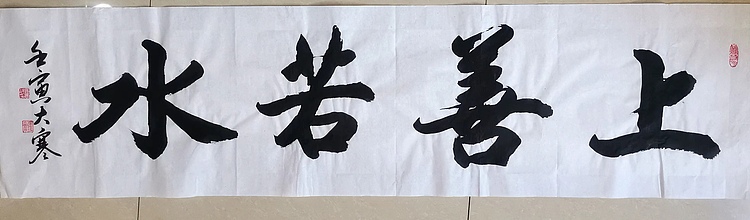 上善若水
壬寅大寒